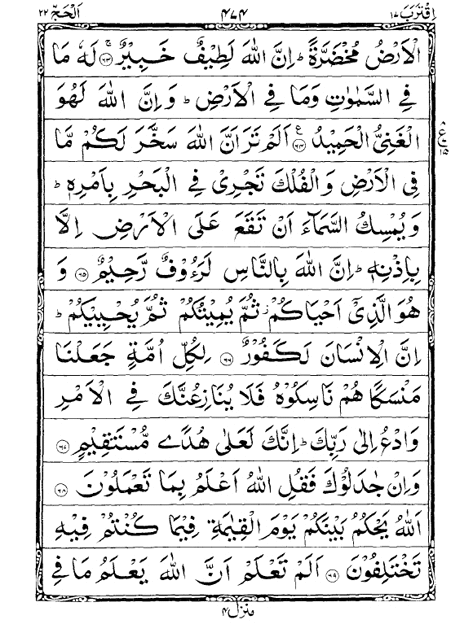 اِقْتَرَبَ ١٧ ٤٧٤ اَلْحَجّ ٢٢
الْاَرْضُ مُخْضَرَّةً ؕ اِنَّ اللّٰهَ لَطِيْفٌ خَبِيْرٌ ۚ﴿۶۳﴾ لَهٗ مَا
فِى السَّمٰوٰتِ وَمَا فِى الْاَرْضِ ؕ وَاِنَّ اللّٰهَ لَهُوَ
الْغَنِىُّ الْحَمِيْدُ ﴿۶۴﴾ اَلَمْ تَرَ اَنَّ اللّٰهَ سَخَّرَ لَكُمْ مَّا
فِى الْاَرْضِ وَالْفُلْكَ تَجْرِىْ فِى الْبَحْرِ بِاَمْرِهٖ ؕ
وَيُمْسِكُ السَّمَآءَ اَنْ تَقَعَ عَلَى الْاَرْضِ اِلَّا
بِاِذْنِهٖ ؕ اِنَّ اللّٰهَ بِالنَّاسِ لَرَءُوْفٌ رَّحِيْمٌ ﴿۶۵﴾ وَ
هُوَ الَّذِىْۤ اَحْيَاكُمْ ؗ ثُمَّ يُمِيْتُكُمْ ثُمَّ يُحْيِيْكُمْ ؕ
اِنَّ الْاِنْسَانَ لَكَفُوْرٌ ﴿۶۶﴾ لِكُلِّ اُمَّةٍ جَعَلْنَا
مَنْسَكًا هُمْ نَاسِكُوْهُ فَلَا يُنَازِعُنَّكَ فِى الْاَمْرِ
وَادْعُ اِلٰى رَبِّكَ ؕ اِنَّكَ لَعَلٰى هُدًى مُّسْتَقِيْمٍ ﴿۶۷﴾
وَاِنْ جٰدَلُوْكَ فَقُلِ اللّٰهُ اَعْلَمُ بِمَا تَعْمَلُوْنَ ﴿۶۸﴾
اَللّٰهُ يَحْكُمُ بَيْنَكُمْ يَوْمَ الْقِيٰمَةِ فِيْمَا كُنْتُمْ فِيْهِ
تَخْتَلِفُوْنَ ﴿۶۹﴾ اَلَمْ تَعْلَمْ اَنَّ اللّٰهَ يَعْلَمُ مَا فِى
منزل ٤